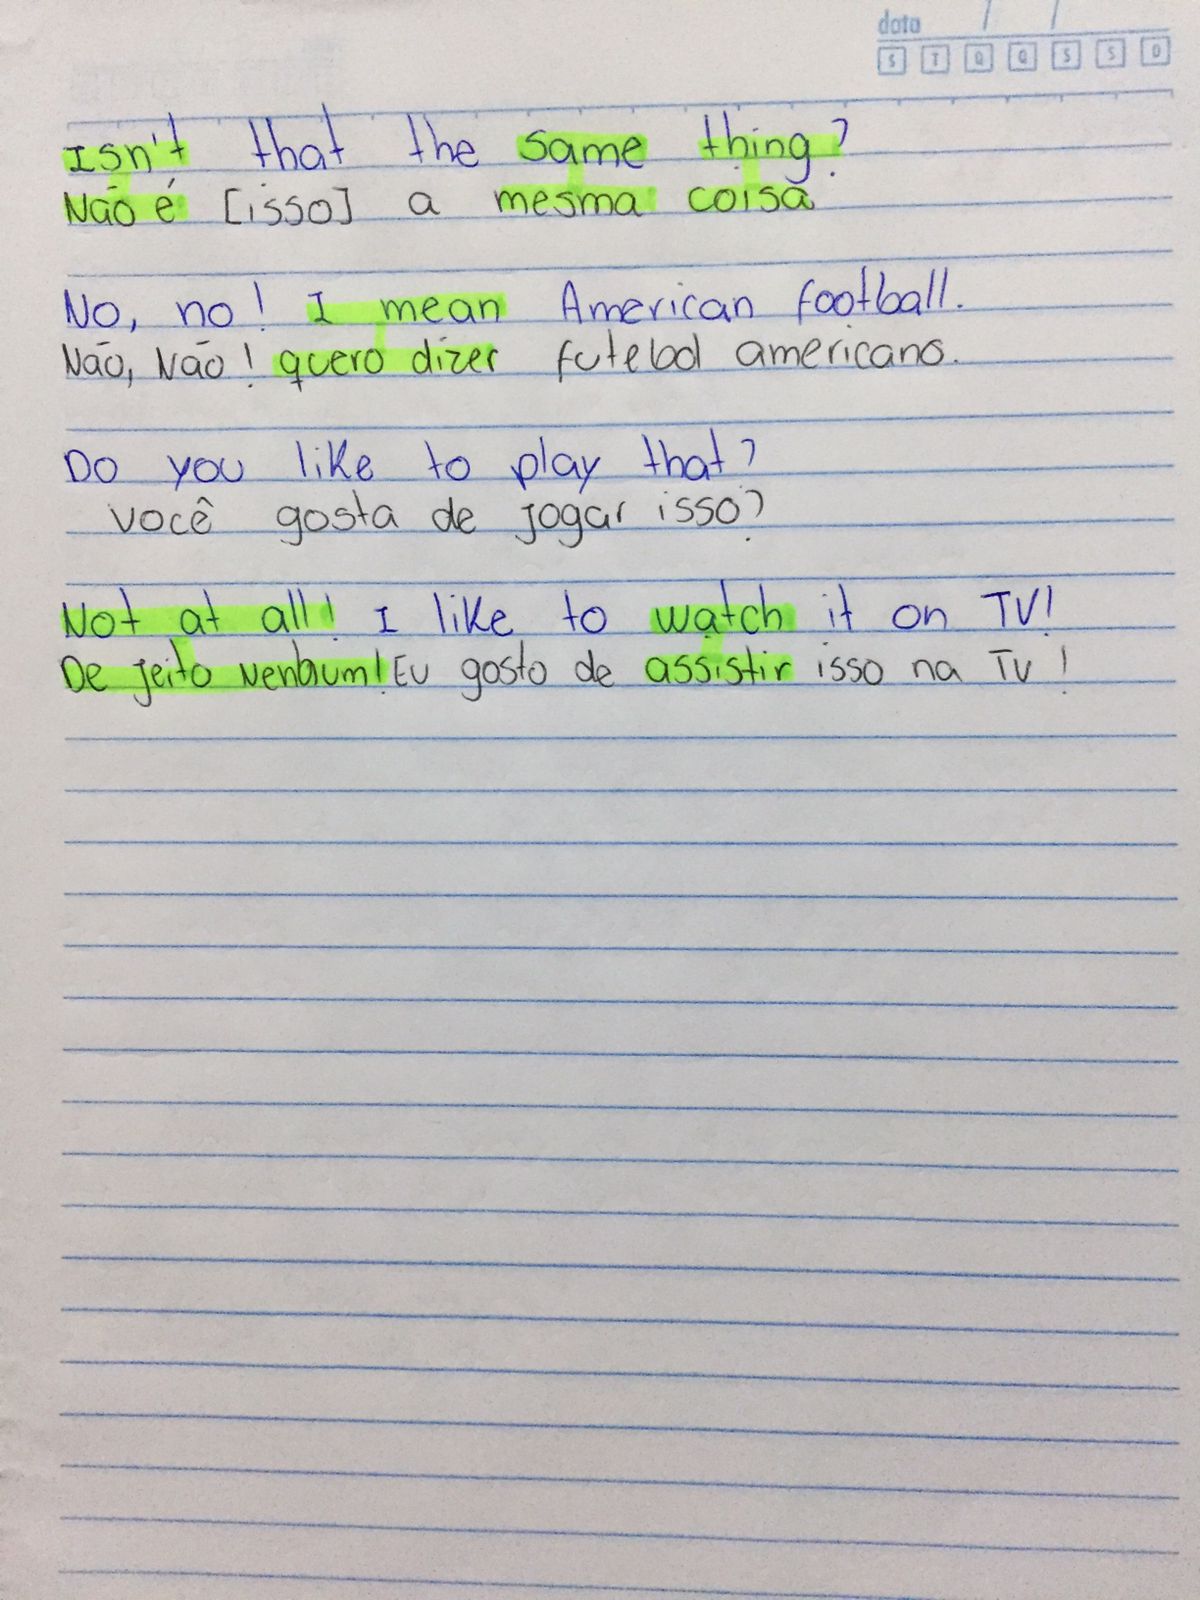 data / /
S T Q Q S S D
Isn't that the same thing?
Não é [isso] a mesma coisa
No, no! I mean American football.
Não, Não! quero dizer futebol americano.
Do you like to play that?
você gosta de jogar isso?
Not at all! I like to watch it on TV!
De jeito nenhum! Eu gosto de assistir isso na TV!